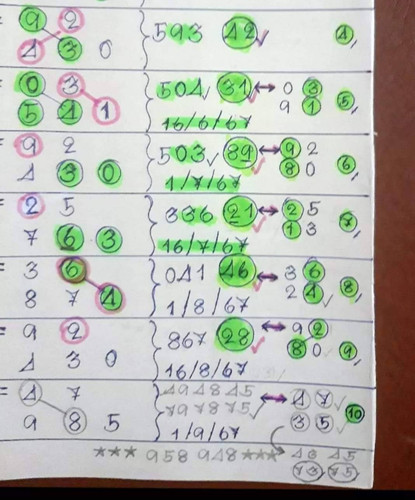 9 2 593 42 4,
1 3 0
= 0 3 504 31 ↔ 0 3
5 1 1 16/6/67 9 1 5,
= 9 2 503 89 ↔ 9 2
1 3 0 1/7/67 8 0 6,
= 2 5 336 21 ↔ 2 5
7 6 3 16/7/67 1 3 7,
= 3 6 041 46 ↔ 3 6
8 7 1 1/8/67 2 1 8,
= 9 2 867 28 ↔ 9 2
1 3 0 16/8/67 8 0 9,
= 1 7 494845 ↔ 1 7
9 8 5 797875 3 5 10
1/9/67
*** 958 948 *** 48 45
73 75